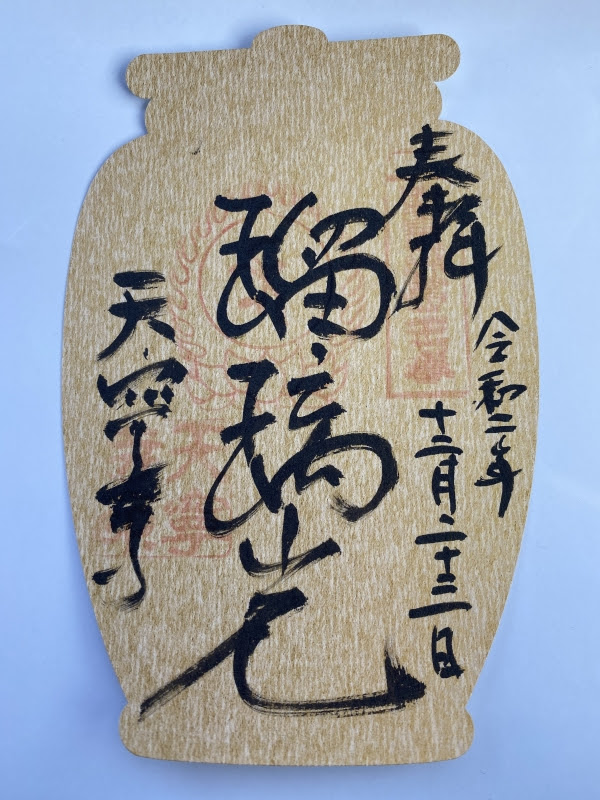 奉拝
令和二年
十二月二十三日
瑠璃光
天寧寺